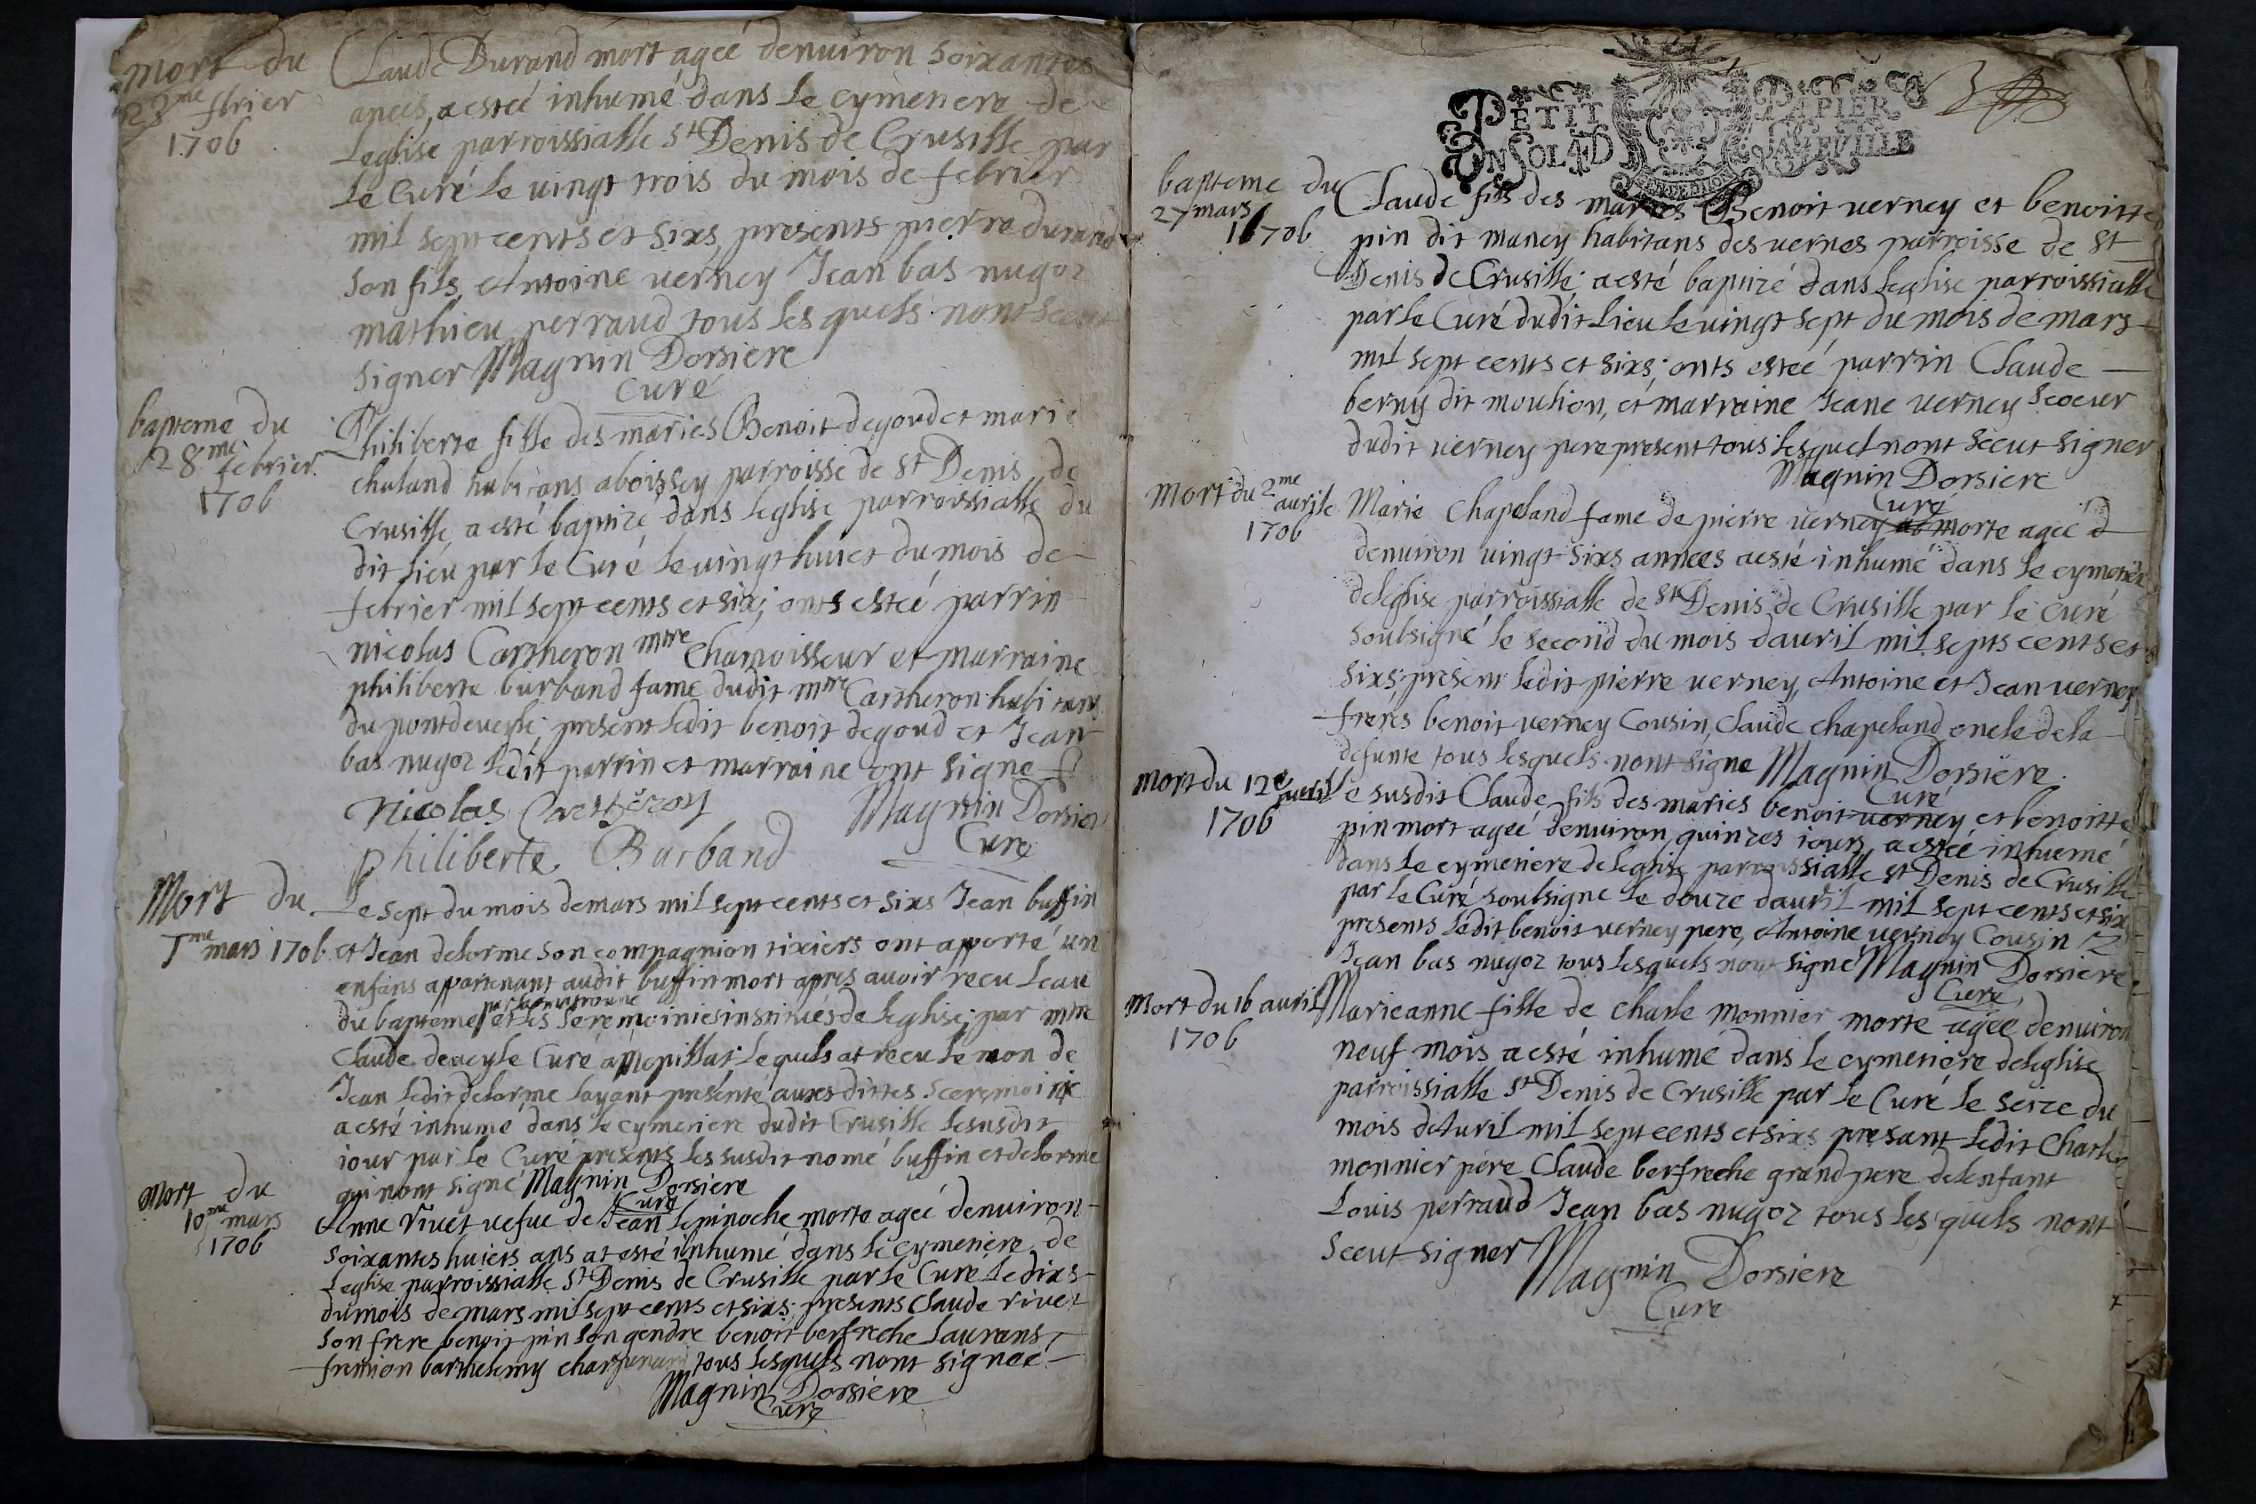 Mort du
23me fbrier
1706
Claude Durand mort ageé denuiron soixantes
aneés, a esteé inhumé dans le cymetiere de
Leglise parroissialle St Denis de Crusille par
Le Curé le uingt trois du mois de febrier
mil sept cents et sixs presents pierre durand
son fils, Antoine verney Jean bas nugoz
mathieu perraud tous les quels nont sceut
signer Magnin Dorsiere
Curé
bapteme du
28me febrier
1706
Philiberte fille des mariés Benoit degoud et marie
chaland habitans aboissey parroisse de St Denis de
Crusille a esté baptizé dans leglise parroissialle du
dit lieu par le Curé le uingt huict du mois de
febrier mil sept cents et six; onts esteé parrin
nicolas Cartheron mtre chamoisseur et marraine
philiberte burband fame dudit mtre Cartheron habitans
du pontdeuesle; present ledit benoit degoud et Jean
bas nugoz ledit parrin et marraine ont signe
Nicolas Cartheron Magnin Dorsiere
Philiberte Burband Curé
Mort du
7me mars 1706
Le sept du mois de mars mil sept cents et sixs Jean buffin
et Jean delorme son compagnion tixiers ont apporté un
enfans appartenant audit buffin mort apres auoir recu leau
du bapteme et les seremoinies institués de leglise; par mtre
Claude deacyle Curé a Mepillat; lequels at recu le non de
Jean ledit delorme layant presenté auxes dittes sceremoinie
a esté inhumé dans le cymetiere dudit Crusille le susdit
iour par le Curé presents les susdit nomé buffin et delorme
qui nont signé Magnin Dorsiere
Curé
Mort du
10me mars
1706
Anne riuet uefue de Jean lepinoche morte ageé denuiron
soixantes huicts ans at esté inhumé dans le cymetiere de
Leglise parroissialle St Denis de Crusille par le Cure le dixs
du mois de mars mil sept cents et sixs; presents Claude riuet
son frere benoit pin son gendre benoit berfreche Laurans
fremion barthelemy charpenard tous lesquels nont signeé
Magnin Dorsiere
Curé
PETIT PAPIER
UN SOL 4 D LA FEUILLE
bapteme du
27 mars
1706
Claude fils des mariés Benoit uerney et benoitte
pin dit maney habitans des uernes parroisse de St
Denis de Crusille a esté baptizé dans leglise parroissialle
par le Curé dudit lieu le uingt sept du mois de mars
mil sept cents et sixs; onts esteé parrin Claude
berny dit moulion, et marraine Jeane uerney scoeur
dudit uerney pere present tous lesquel nont sceut signer
Magnin Dorsiere
Curé
Mort du 2me
aurile
1706
Marie Chapeland fame de pierre uerney morte ageé d
denuiron uingt sixs annees a esté inhumé dans le cymetiere
deleglise parroissialle de St Denis de Crusille par le curé
soubsigné le second du mois dauril mil septs cents et
sixs; present ledit pierre uerney, Antoine et Jean uerney
freres benoit uerney Cousin, Claude chapeland oncle dela
defunte tous lesquels nont signe Magnin Dorsiere
Curé
Mort du 12e
auril
1706
Le susdit Claude fils des mariés benoit uerney et benoitte
pin mort ageé denuiron quinzes iours, a esteé inhumé
dans le cymetiere deleglise parroissialle St Denis de Crusille
par le Curé soubsigne le douze dauril mil sept cents et six
presents ledit benoit uerney pere, Antoine uerney Cousin
Jean bas nugoz tous lesquels nont signé Magnin Dorsiere
Curé
Mort du 16 auril
1706
Marieanne fille de Charle monnier morte ageé denuiron
neuf mois a esté inhumé dans le cymetiere deleglise
parroissialle St Denis de Crusille par le Curé le seize du
mois dAuril mil sept cents et sixs presant ledit Charle
monnier pere Claude berfreche grand pere delenfant
Louis perraud Jean bas nugoz tous les quels nont
sceut signer Magnin Dorsiere
Cure